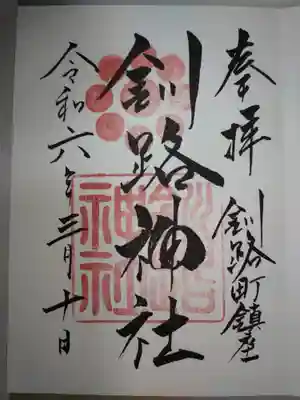 奉拝
釧路町鎮座
釧路神社
令和六年三月十日
釧路
神社